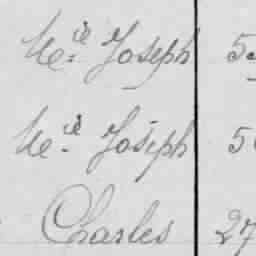 M.ie Joseph 5
M.ie Joseph 5
Charles 27